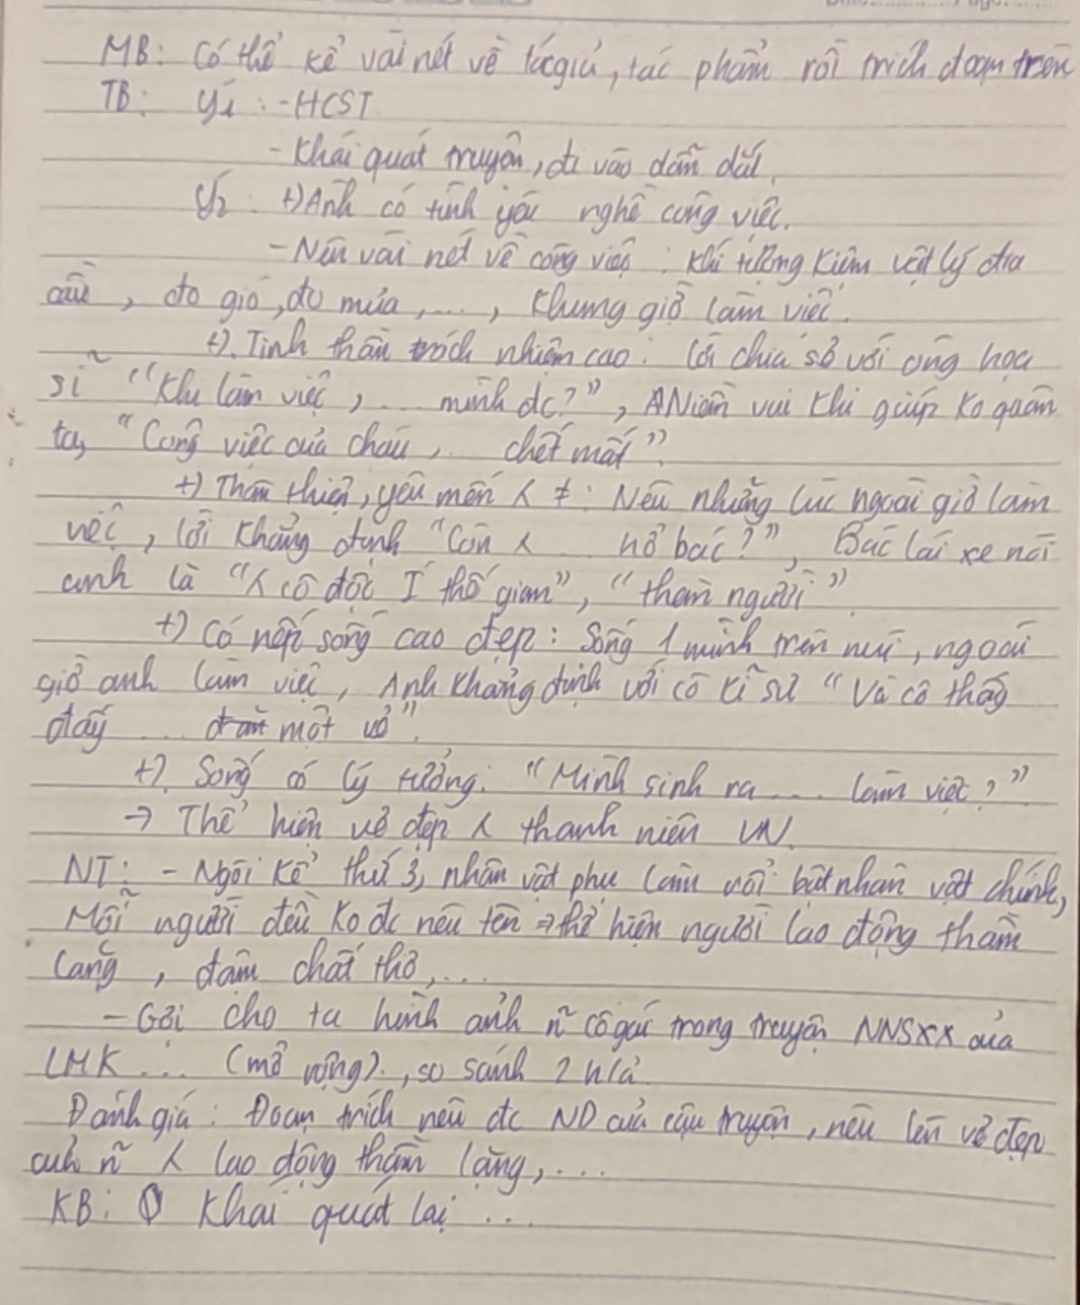 MB: Có thể kể vài nét về tácgiả, tác phẩm rồi trích đoạn trên
TB: Ý1: -HCST
- Khái quát truyện, đi vào dẫn dắt.
Ý2: +) Anh có tình yêu nghề công việc.
- Nêu vài nét về công việc: khí tượng kiêm vật lý địa
cầu, đo gió, đo mưa,..., khung giờ làm việc.
+). Tinh thần trách nhiệm cao: Lời chia sẻ với ông họa
sĩ "Khi làm việc, ... mình đc?", Niềm vui khi giúp ko quân
ta, "Công việc của cháu, ... chết mất".
+) Thân thiện, yêu mến λ ≠: Nêu những lúc ngoài giờ làm
việc, lời khẳng định "Còn λ ... hở bác?", Bác lái xe nói
anh là "λ cô độc I thế gian", "thèm người".
+) Có nếp sống cao đẹp: Sống 1 mình trên núi, ngoài
giờ anh làm việc, Anh khẳng định với cô kĩ sư "Và cô thấy
đấy ... một vẻ".
+). Sống có lý tưởng: "Mình sinh ra ... làm việc?"
→ Thể hiện vẻ đẹp λ thanh niên VN.
NT: - Ngôi kể thứ 3, nhân vật phụ làm nổi bật nhân vật chính,
Mỗi người đều ko đc nêu tên → thể hiện người lao động thầm
lặng, đậm chất thơ,...
- Gợi cho ta hình ảnh n~ cô gái trong truyện NNSXX của
LMK... (mở rộng)., so sánh 2 h/ả.
Đánh giá: Đoạn trích nêu đc ND của câu truyện, nêu lên vẻ đẹp
của n~ λ lao động thầm lặng,...
KB: Khái quát lại ...